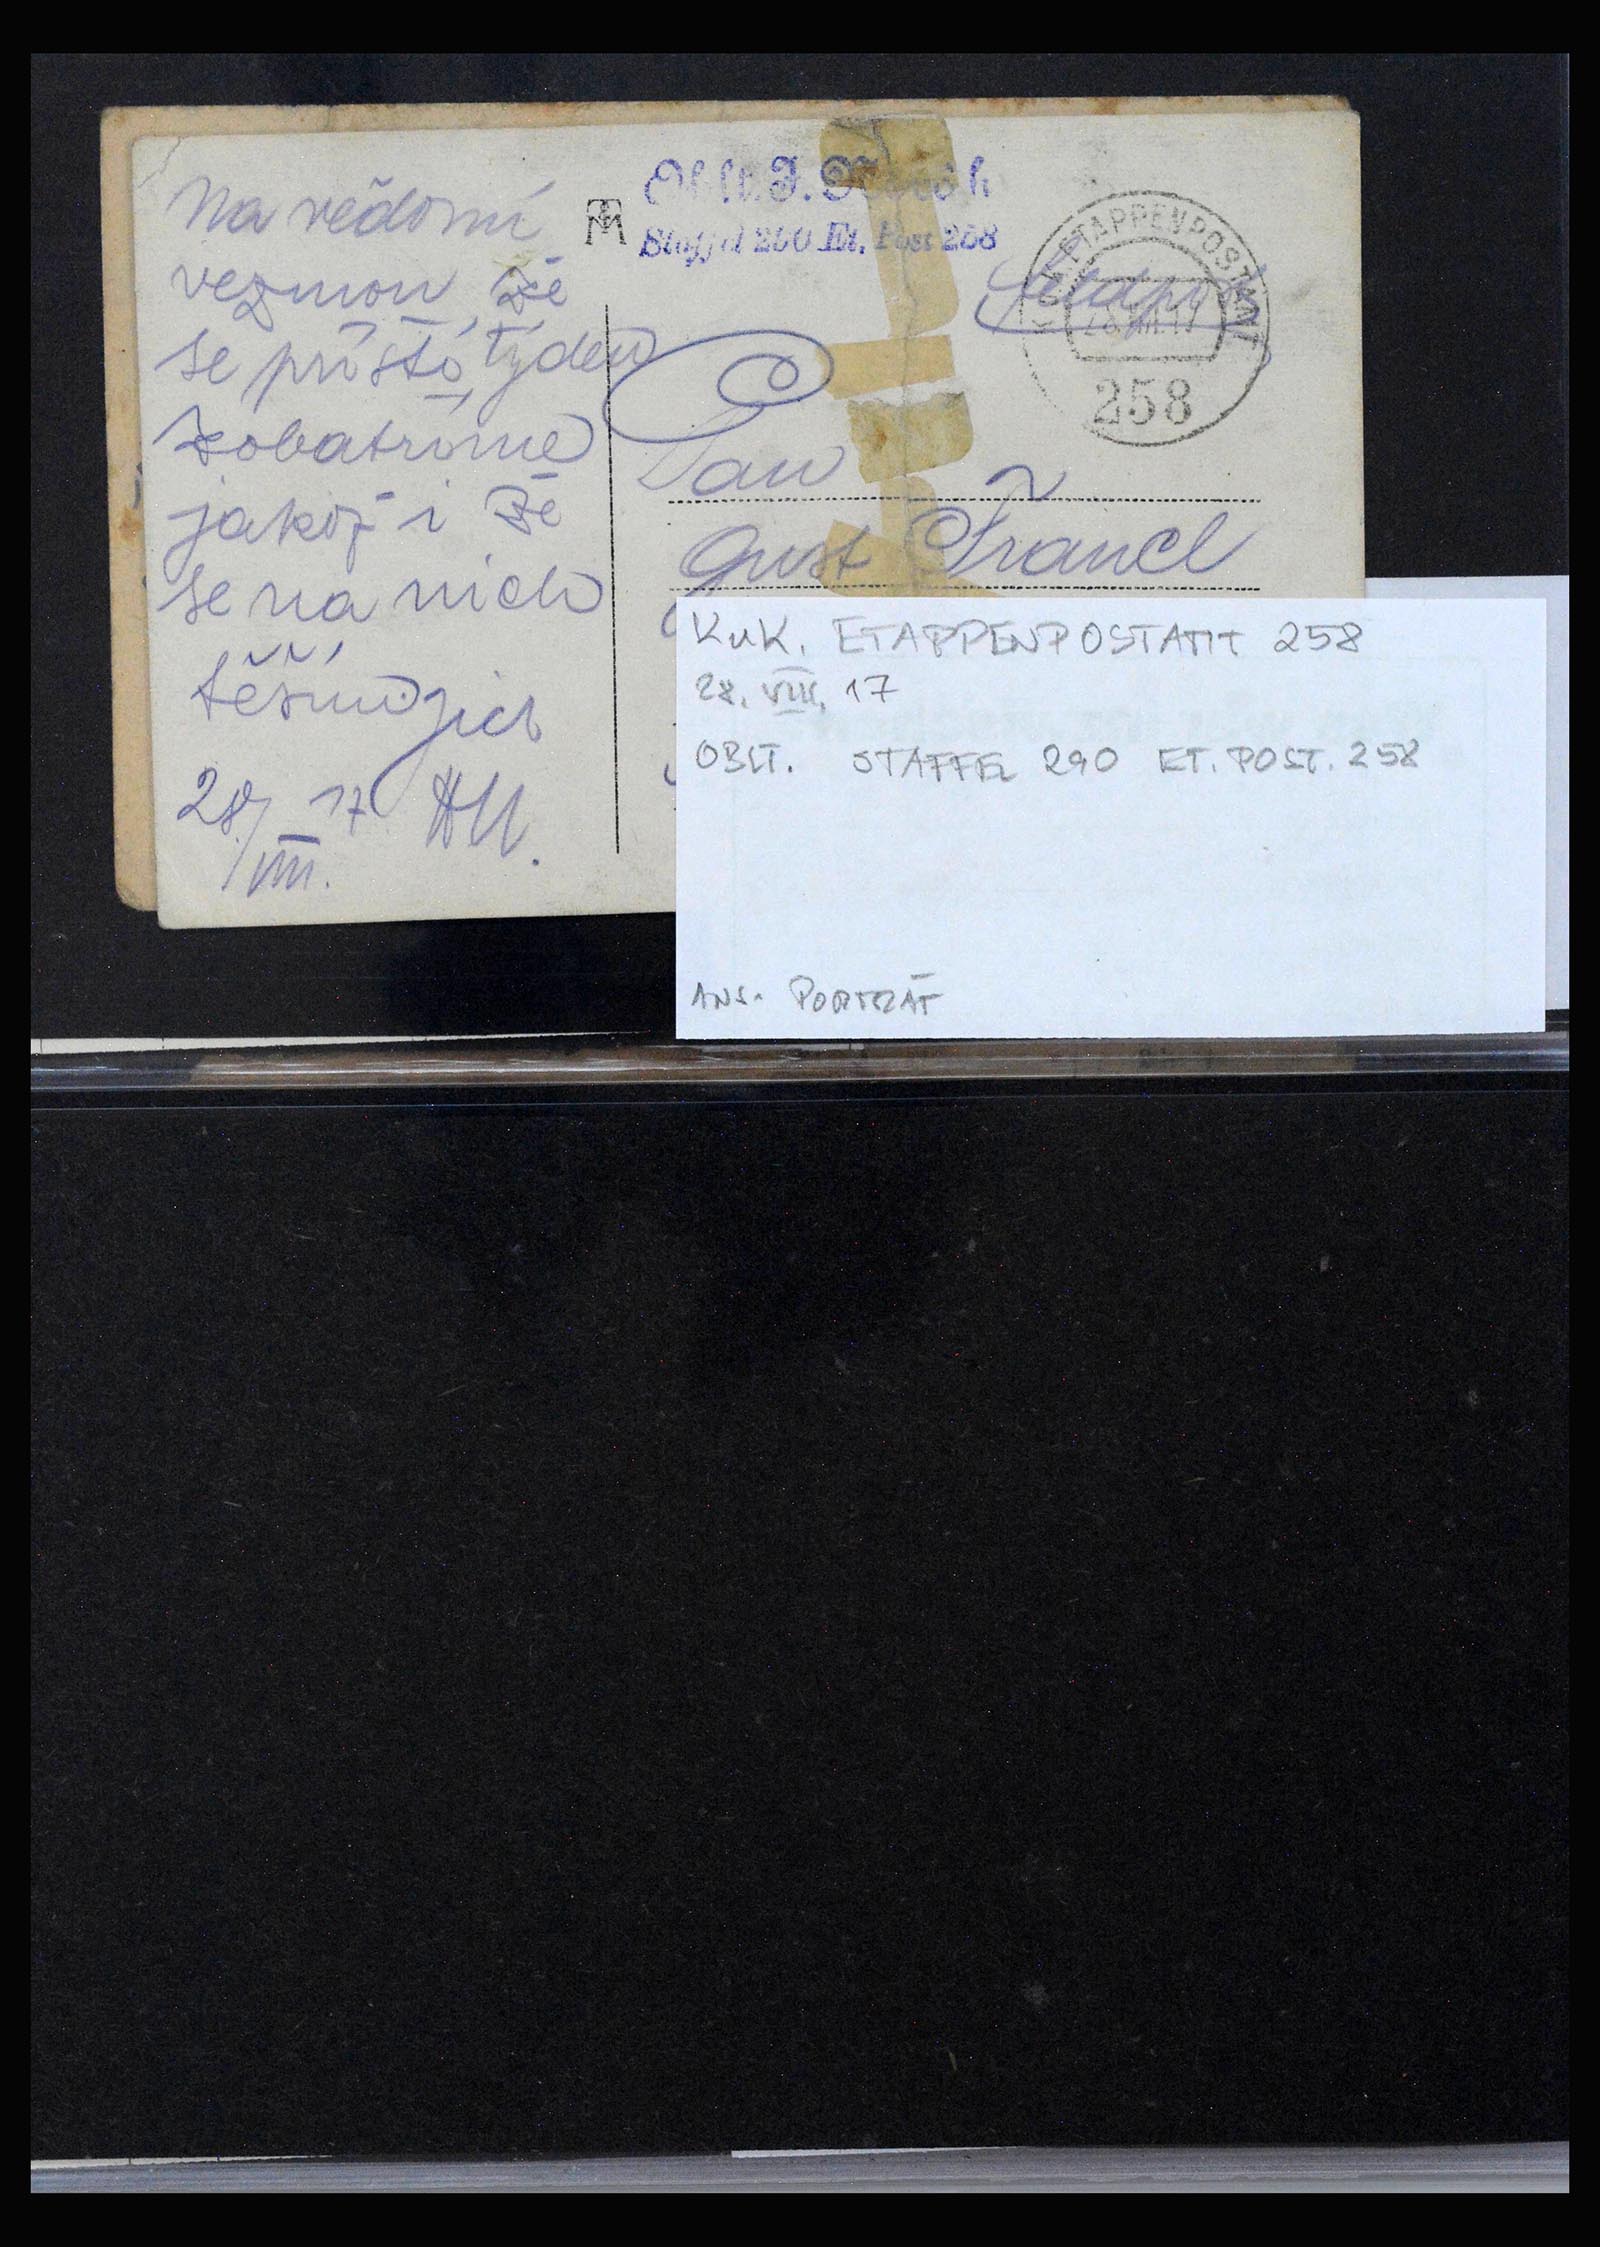 Na vědomí
vezmou, že
se příští týden
jakož i že
se na nich
těšíme jich
28/VIII. 17
Staffel 290 Et. Post 258
K.u.K. ETAPPENPOSTAMT
28.VIII.17
258
Feldpost
Pan
Gust Francl
K.u.K. ETAPPENPOSTAMT 258
28. VIII. 17
OBLT. STAFFEL 290 ET. POST. 258
ANS. PORTRÄT